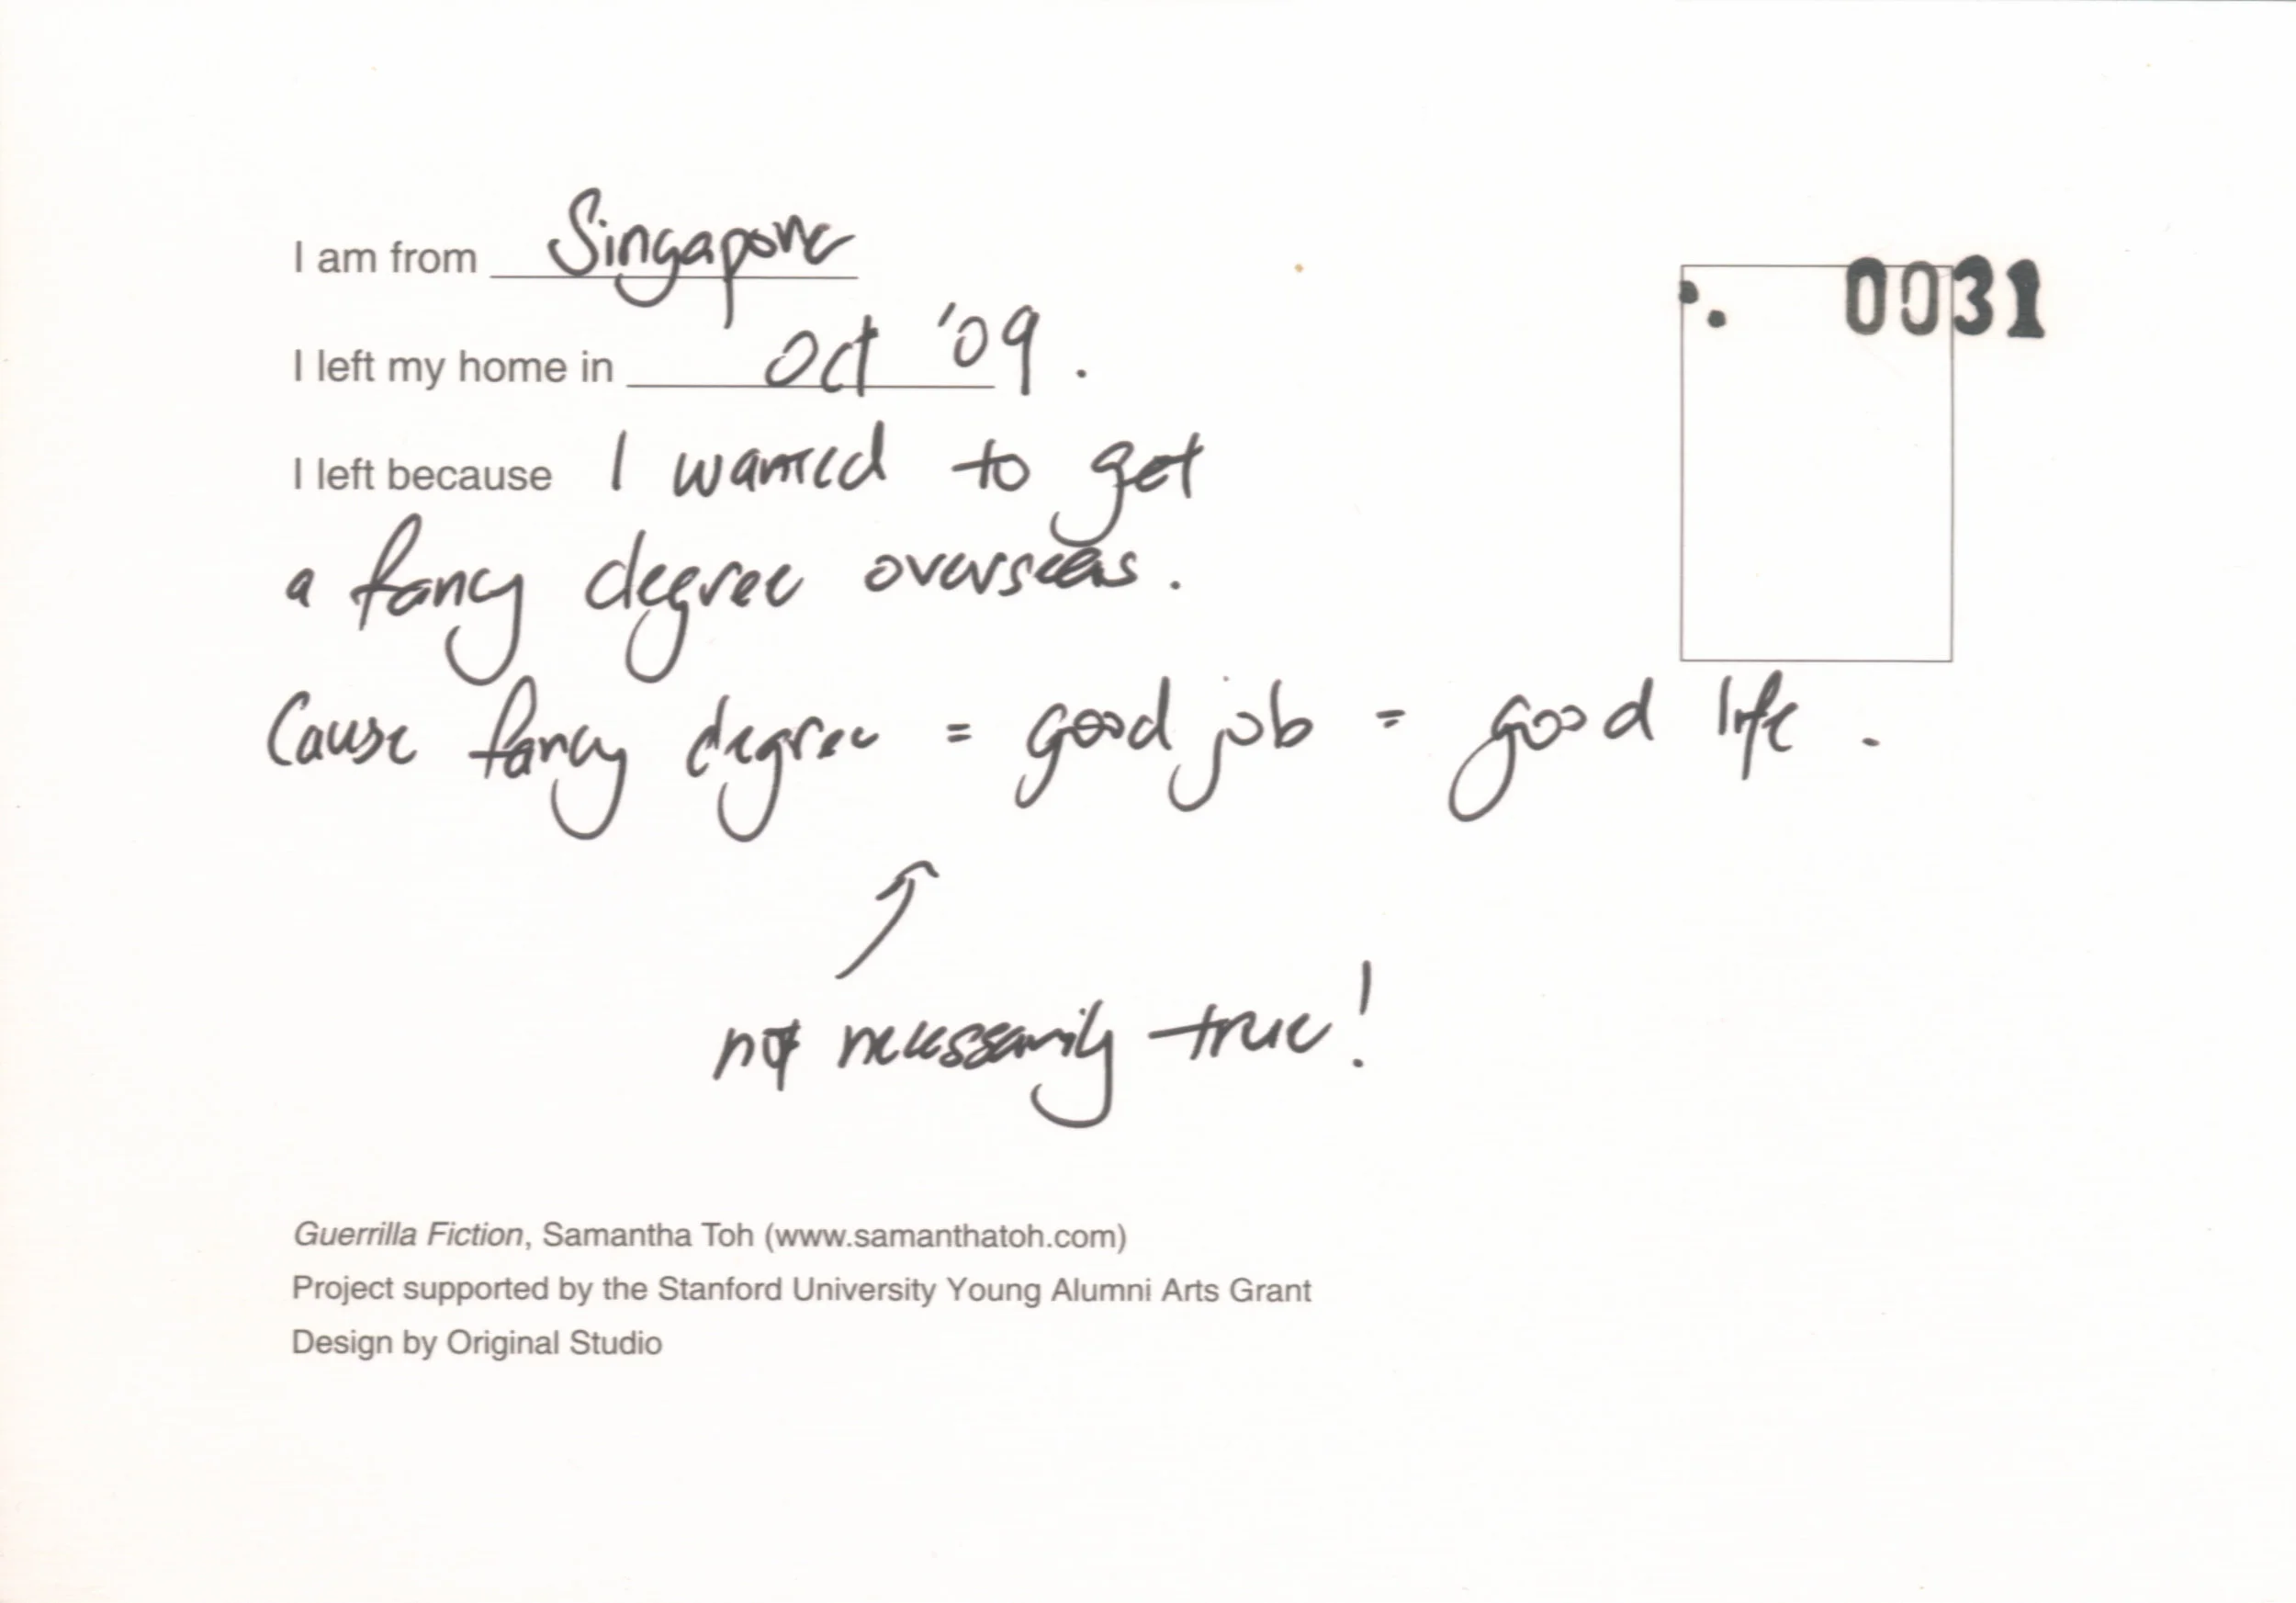 I am from Singapore
0031
I left my home in Oct '09.
I left because I wanted to get
a fancy degree overseas.
Cause fancy degree = good job = good life.
not necessarily true!
Guerrilla Fiction, Samantha Toh (www.samanthatoh.com)
Project supported by the Stanford University Young Alumni Arts Grant
Design by Original Studio